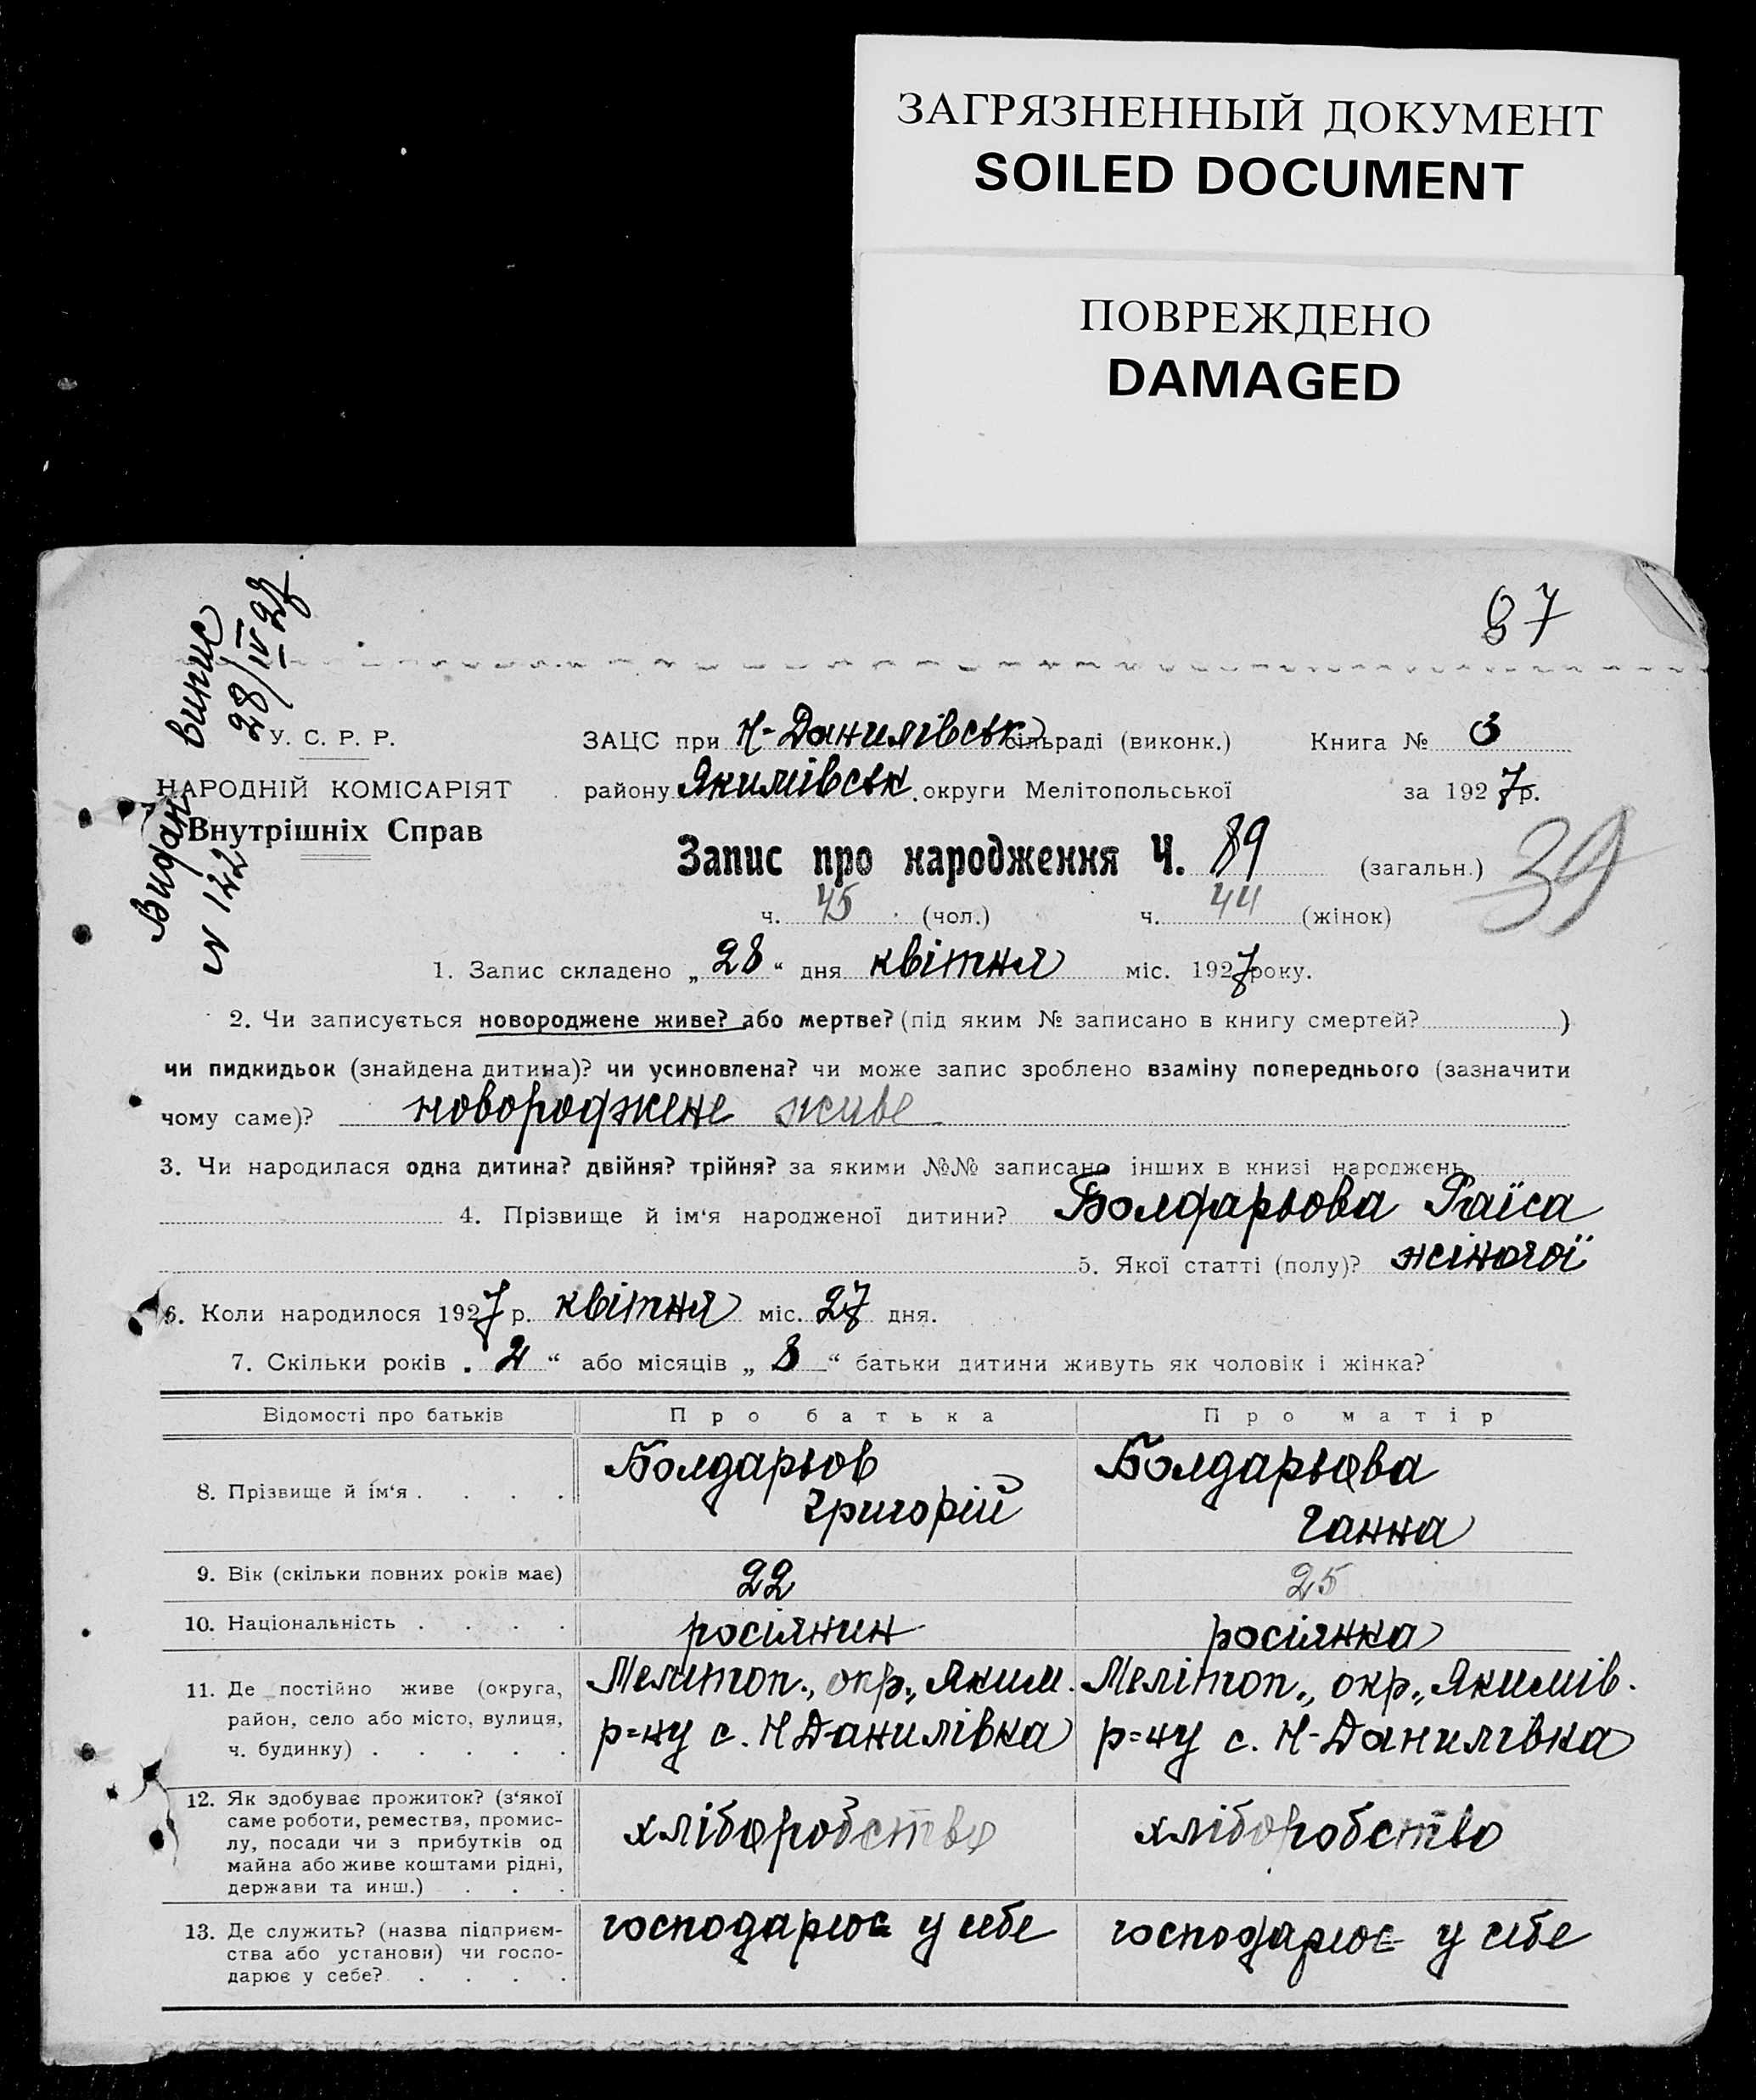 ЗАГРЯЗНЕННЫЙ ДОКУМЕНТ
SOILED DOCUMENT
ПОВРЕЖДЕНО
DAMAGED
87
Видан випис
N 122 28/IV 27
У. С. Р. Р.
НАРОДНІЙ КОМІСАРІЯТ
Внутрішніх Справ
ЗАЦС при Н-Данилівськ сільраді (виконк.) Книга № 3
району Якимівськ. округи Мелітопольської за 1927р.
Запис про народження Ч. 89 (загальн.)
39
ч. 45 (чол.) ч. 44 (жінок)
1. Запис складено „28“ дня квітня міс. 1927року.
2. Чи записується новороджене живе? або мертве? (під яким № записано в книгу смертей? )
чи пидкидьок (знайдена дитина)? чи усиновлена? чи може запис зроблено взаміну попереднього (зазначити
чому саме)? новороджене живе
3. Чи народилася одна дитина? двійня? трійня? за якими №№ записано інших в книзі народжень
4. Прізвище й ім‘я народженої дитини? Болдарьова Раїса
5. Якої статті (полу)? жіночої
6. Коли народилося 1927 р. квітня міс. 27 дня.
7. Скільки років „2“ або місяців „8“ батьки дитини живуть як чоловік і жінка?
Відомості про батьків Про батька Про матір
8. Прізвище й ім‘я . . . . Болдарьов Григорій Болдарьова Ганна
9. Вік (скільки повних років має) 22 25
10. Національність . . . . росіянин росіянка
11. Де постійно живе (округа,
район, село або місто, вулиця,
ч. будинку) . . . . .
Мелитоп., окр., Яким.
р=ну с. Н Данилівка
Мелітоп., окр., Якимів.
р=ну с. Н-Данилівка
12. Як здобуває прожиток? (з‘якої
саме роботи, ремества, промис-
лу, посади чи з прибутків од
майна або живе коштами рідні,
держави та инш.) . . .
хліборобство
хліборобство
13. Де служить? (назва підприєм-
ства або установи) чи госпо-
дарює у себе? . . . .
господарює у себе
господарює у себе